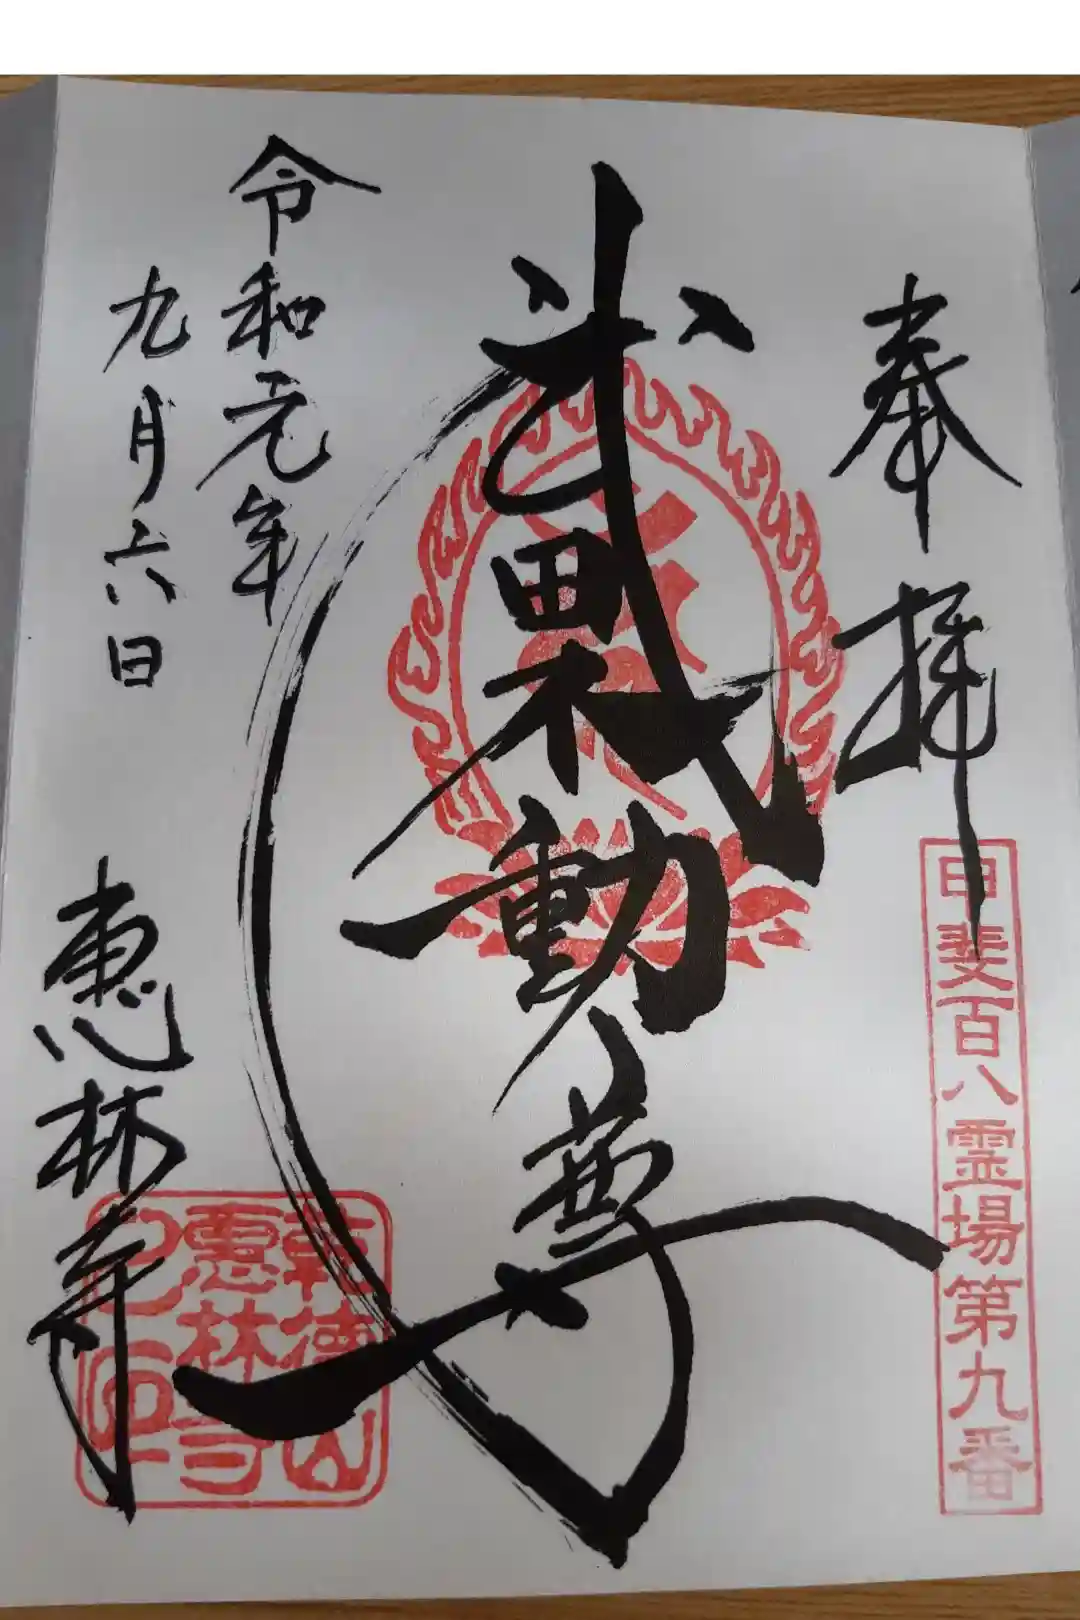 奉拝
甲斐百八霊場第九番
武田不動尊
令和元年
九月六日
恵林寺
乾徳山
恵林寺